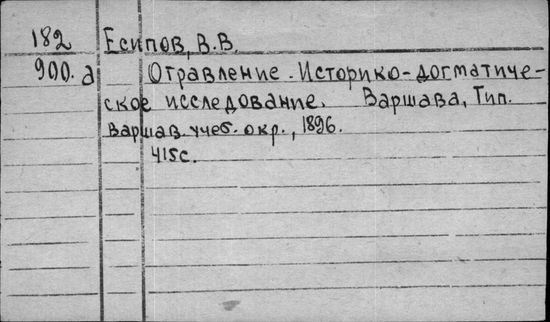 182 Есипов, В.В.
900. а Отравление. Историко-догматиче-
ское исследование. Варшава, Тип.
Варшав. учеб. окр., 1896.
415с.